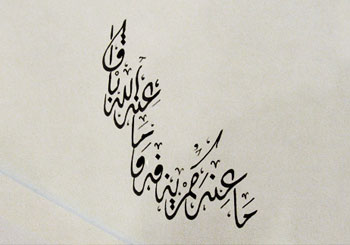 ما عندكم ينفد وما عند الله باق